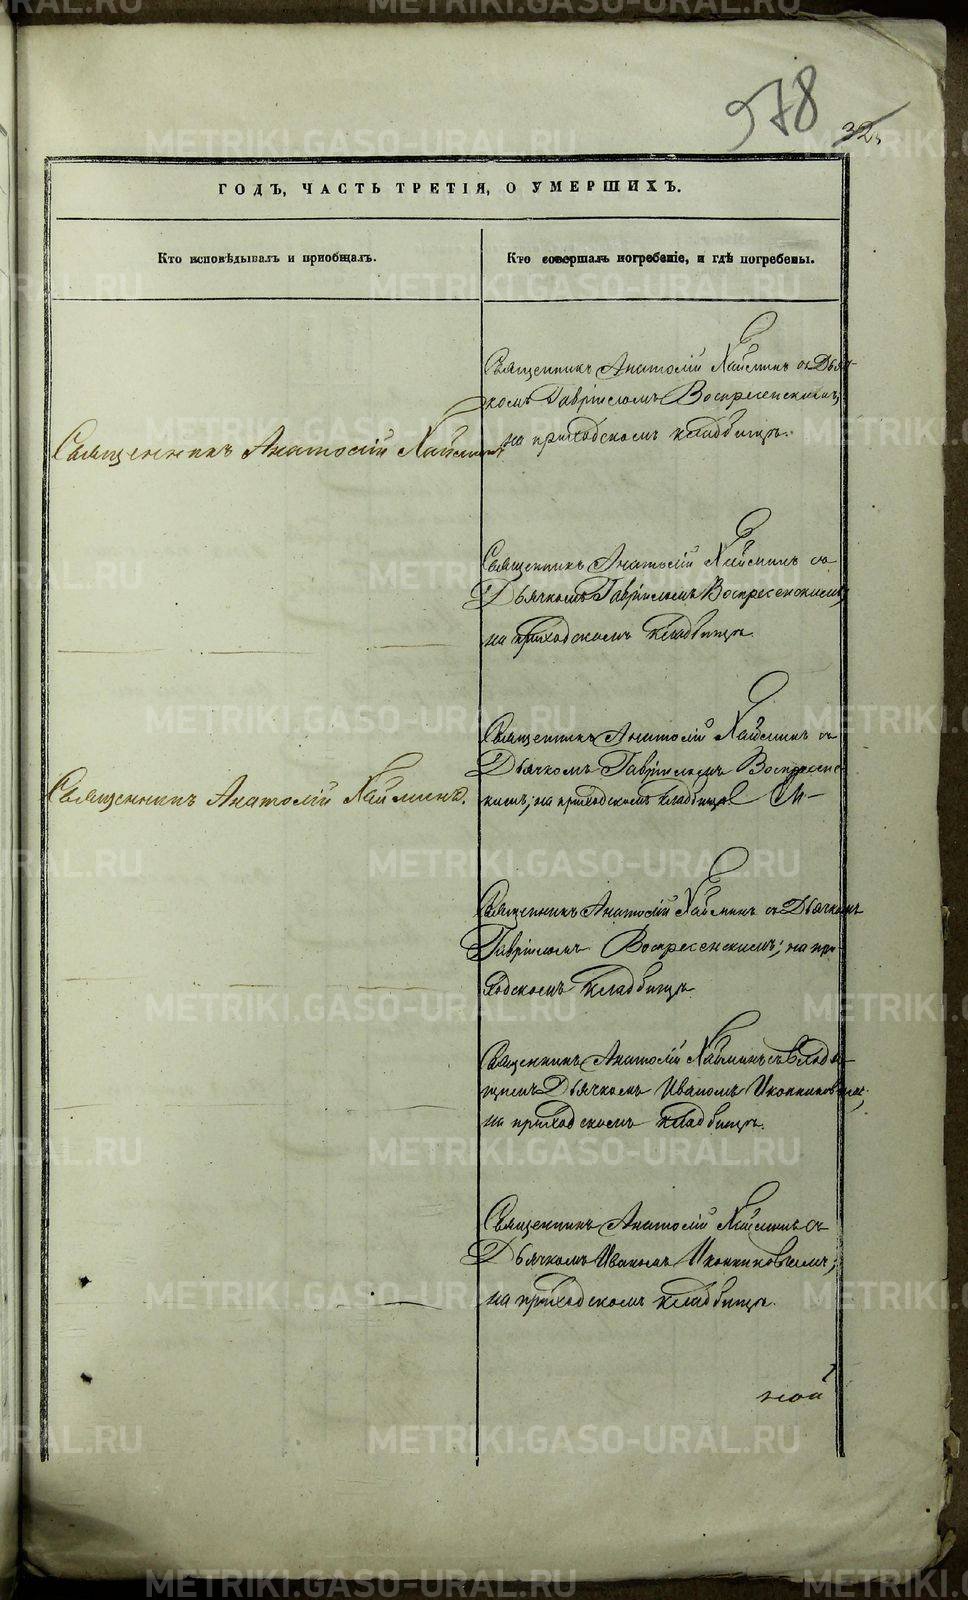 978
32
ГОДЪ, ЧАСТЬ ТРЕТІЯ, О УМЕРШИХЪ.
Кто исповѣдывалъ и пріобщалъ.
Кто совершалъ погребеніе, и гдѣ погребены.
Священникъ Анатолій Хаймин
Священникъ Анатолій Хайминъ съ Дьяч-
комъ Гавріиломъ Воскресенскимъ,
на приходскомъ кладбищѣ.
Священникъ Анатолій Хайминъ съ
Дьячкомъ Гавріиломъ Воскресенскимъ,
на приходскомъ кладбищѣ.
Священникъ Анатолій Хайминъ.
Священникъ Анатолій Хайминъ съ
Дьячкомъ Гавріиломъ Воскресен-
скимъ; на приходскомъ кладбищѣ
Священникъ Анатолій Хайминъ съ Дьячкомъ
Гавріиломъ Воскресенскимъ; на при-
ходскомъ кладбищѣ
Священникъ Анатолій Хайминъ
Дьячкомъ Иваномъ Иконниковымъ;
на приходскомъ кладбищѣ.
Священникъ Анатолій Хайминъ съ
Дьячкомъ Иваномъ Иконниковымъ;
на приходскомъ кладбищѣ.
METRIKI.GASO-URAL.RU